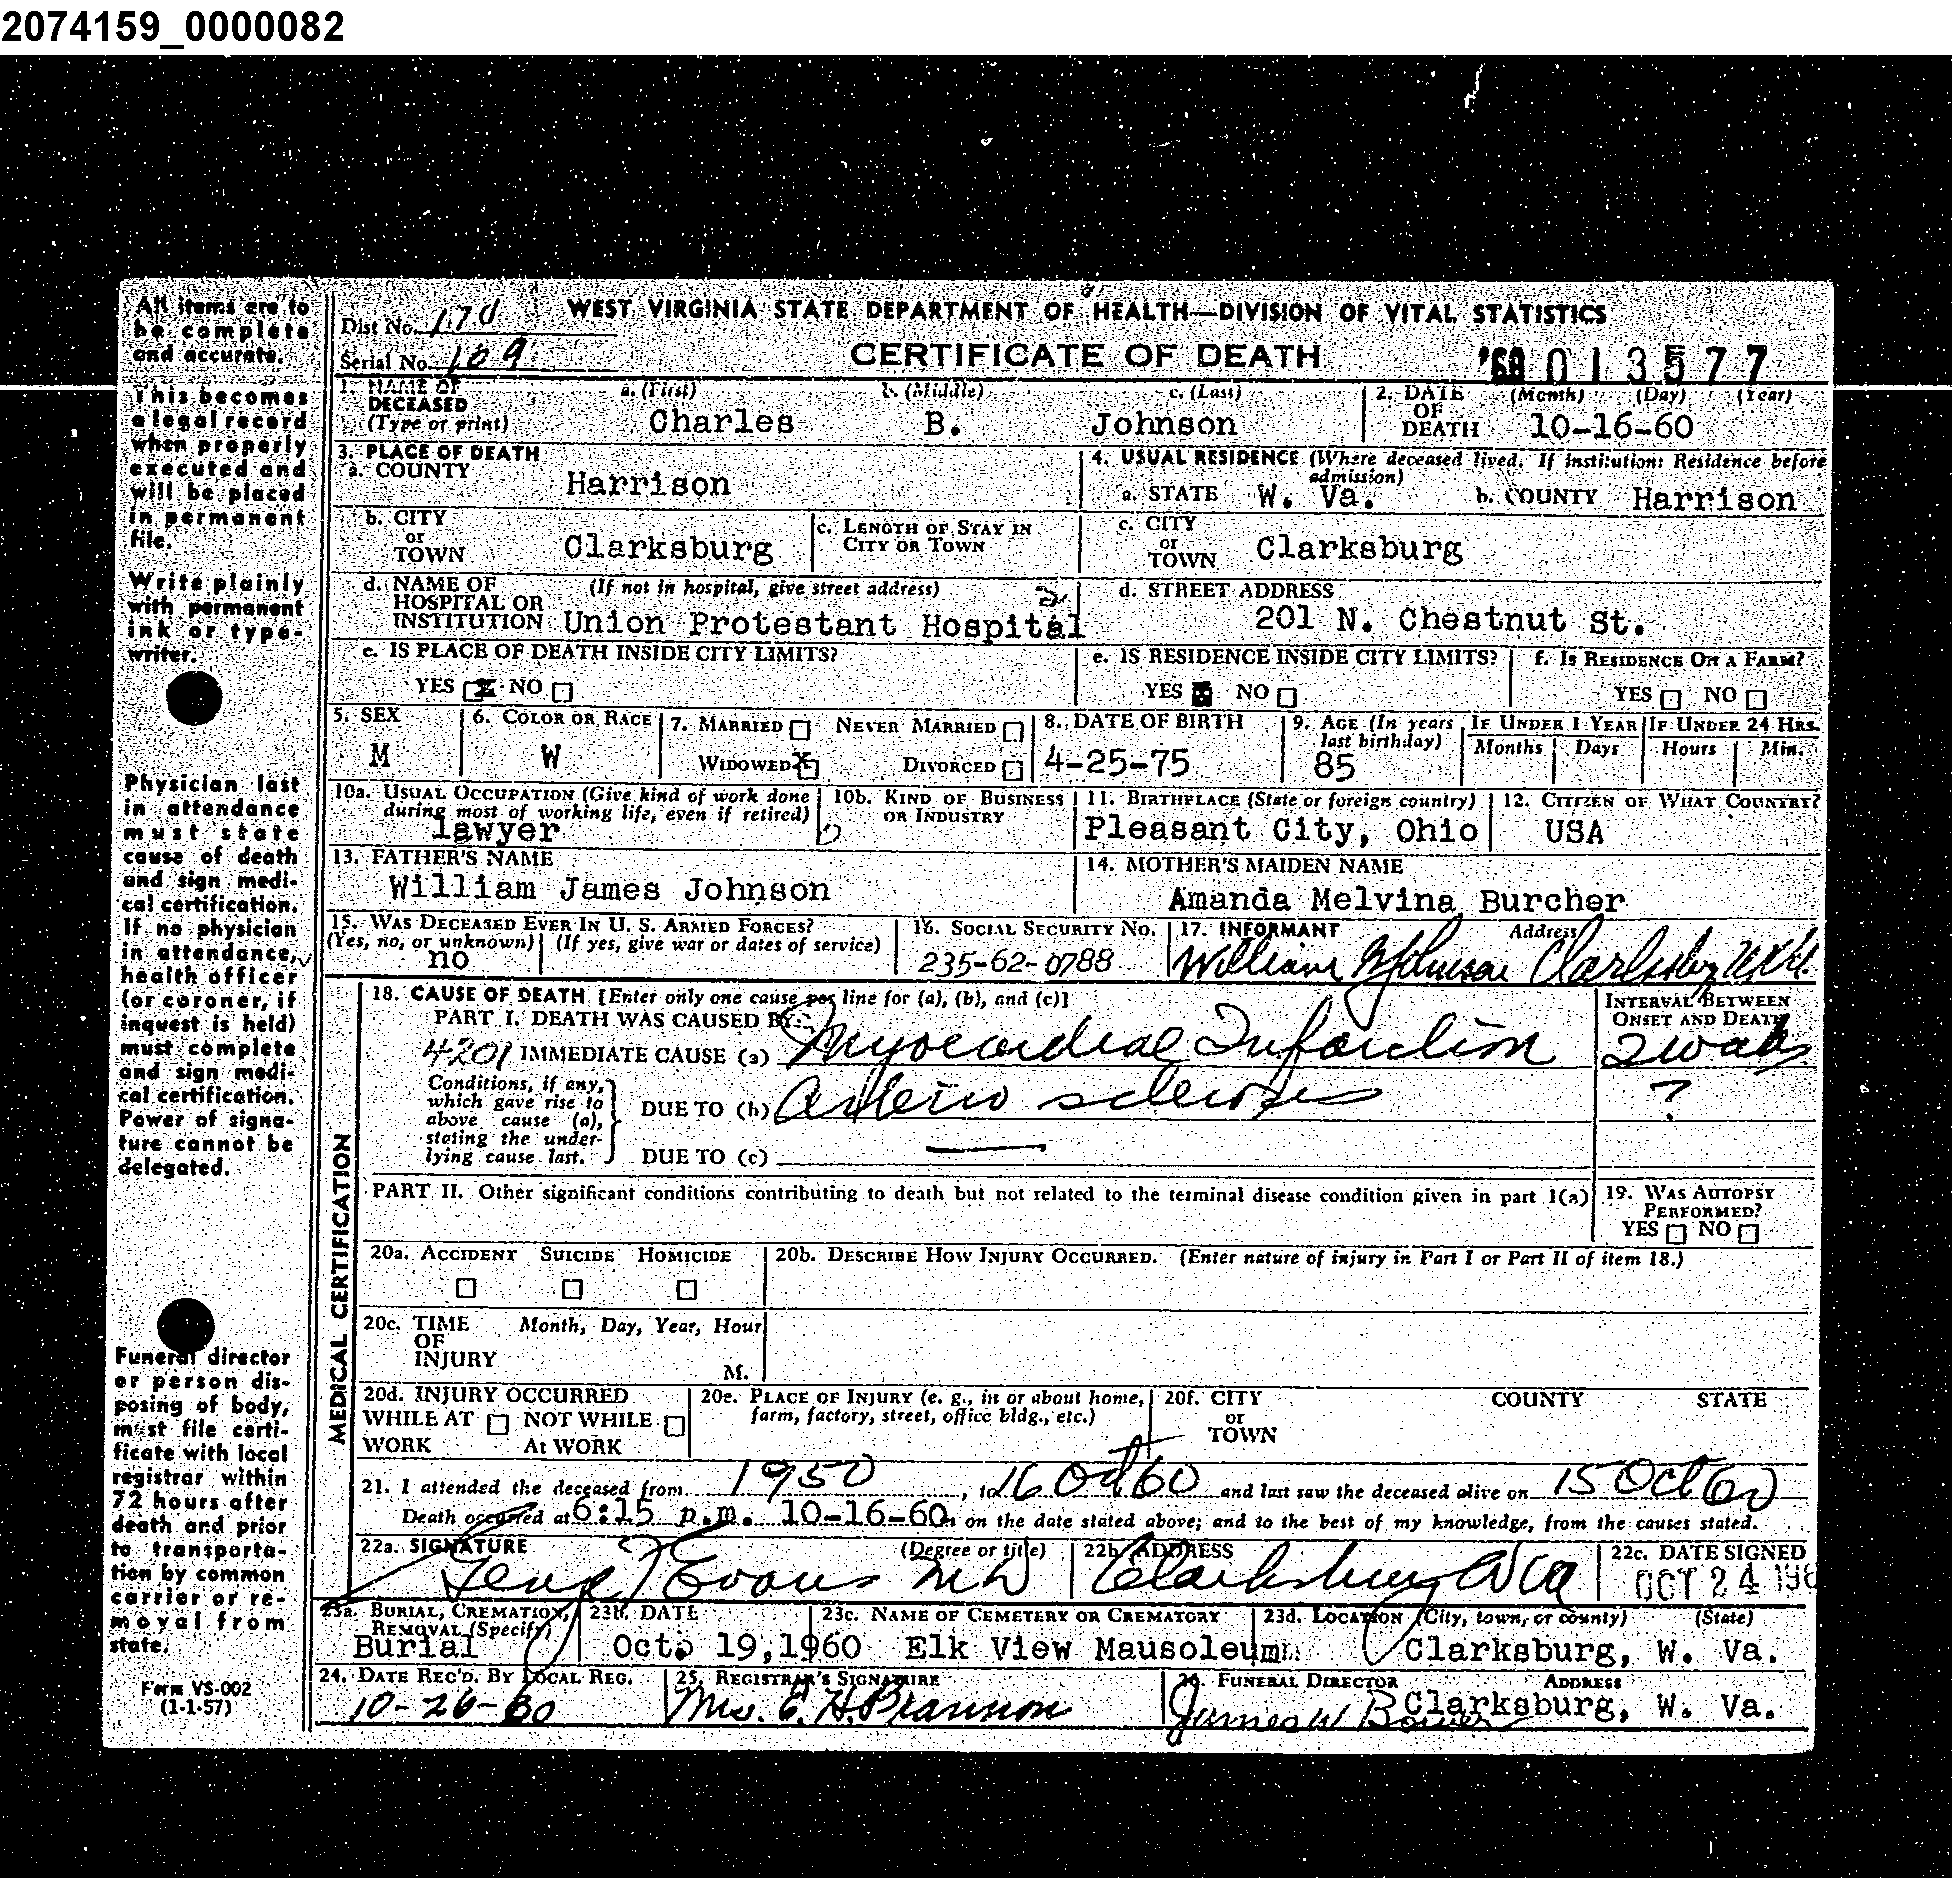 2074159_0000082
All items are to be complete and accurate.
This becomes a legal record when properly executed and will be placed in permanent file.
Write plainly with permanent ink or typewriter.
Physician last in attendance must state cause of death and sign medical certification. If no physician in attendance, health officer (or coroner, if inquest is held) must complete and sign medical certification. Power of signature cannot be delegated.
Funeral director or person disposing of body, must file certificate with local registrar within 72 hours after death and prior to transportation by common carrier or removal from state.
Form VS-002
(1-1-57)
WEST VIRGINIA STATE DEPARTMENT OF HEALTH—DIVISION OF VITAL STATISTICS
Dist No. 170
Serial No. 109
CERTIFICATE OF DEATH
'60 013577
1. NAME OF DECEASED (Type or print) a. (First) b. (Middle) c. (Last)
Charles B. Johnson
2. DATE OF DEATH (Month) (Day) (Year)
10-16-60
3. PLACE OF DEATH
a. COUNTY Harrison
4. USUAL RESIDENCE (Where deceased lived. If institution: Residence before admission)
a. STATE W. Va. b. COUNTY Harrison
b. CITY or TOWN Clarksburg
c. LENGTH OF STAY IN CITY OR TOWN
c. CITY or TOWN Clarksburg
d. NAME OF HOSPITAL OR INSTITUTION (If not in hospital, give street address)
Union Protestant Hospital
2
d. STREET ADDRESS
201 N. Chestnut St.
e. IS PLACE OF DEATH INSIDE CITY LIMITS?
YES X NO
e. IS RESIDENCE INSIDE CITY LIMITS?
YES X NO
f. IS RESIDENCE ON A FARM?
YES NO
5. SEX
M
6. COLOR OR RACE
W
7. MARRIED NEVER MARRIED
WIDOWED X DIVORCED
8. DATE OF BIRTH
4-25-75
9. AGE (In years last birthday)
85
IF UNDER 1 YEAR
Months Days
IF UNDER 24 HRS.
Hours Min.
10a. USUAL OCCUPATION (Give kind of work done during most of working life, even if retired)
lawyer
10b. KIND OF BUSINESS OR INDUSTRY
11. BIRTHPLACE (State or foreign country)
Pleasant City, Ohio
12. CITIZEN OF WHAT COUNTRY?
USA
13. FATHER'S NAME
William James Johnson
14. MOTHER'S MAIDEN NAME
Amanda Melvina Burcher
15. WAS DECEASED EVER IN U. S. ARMED FORCES?
(Yes, no, or unknown) (If yes, give war or dates of service)
no
16. SOCIAL SECURITY No.
235-62-0788
17. INFORMANT Address
William Johnson Clarksburg W.Va.
MEDICAL CERTIFICATION
18. CAUSE OF DEATH [Enter only one cause per line for (a), (b), and (c)]
PART I. DEATH WAS CAUSED BY:
INTERVAL BETWEEN ONSET AND DEATH
4201 IMMEDIATE CAUSE (a) Myocardial Infarction
Conditions, if any, which gave rise to above cause (a), stating the underlying cause last.
DUE TO (b) Arterio sclerosis ?
DUE TO (c) —
PART II. Other significant conditions contributing to death but not related to the terminal disease condition given in part I(a)
19. WAS AUTOPSY PERFORMED?
YES NO
20a. ACCIDENT SUICIDE HOMICIDE
20b. DESCRIBE HOW INJURY OCCURRED. (Enter nature of injury in Part I or Part II of item 18.)
20c. TIME OF INJURY Month, Day, Year, Hour
M.
20d. INJURY OCCURRED
WHILE AT WORK NOT WHILE At WORK
20e. PLACE OF INJURY (e. g., in or about home, farm, factory, street, office bldg., etc.)
20f. CITY or TOWN COUNTY STATE
21. I attended the deceased from 1950, to 16 Oct 60 and last saw the deceased alive on 15 Oct 60
Death occurred at 6:15 p.m. 10-16-60 m on the date stated above; and to the best of my knowledge, from the causes stated.
22a. SIGNATURE (Degree or title)
Evans MD
22b. ADDRESS
Clarksburg W Va
22c. DATE SIGNED
OCT 24 196
23a. BURIAL, CREMATION, REMOVAL (Specify)
Burial
23b. DATE
Oct. 19,1960
23c. NAME OF CEMETERY OR CREMATORY
Elk View Mausoleum
23d. LOCATION (City, town, or county) (State)
Clarksburg, W. Va.
24. DATE REC'D. BY LOCAL REG.
10-26-60
25. REGISTRAR'S SIGNATURE
Mrs. E. H. Brannon
26. FUNERAL DIRECTOR ADDRESS
James W Bower Clarksburg, W. Va.